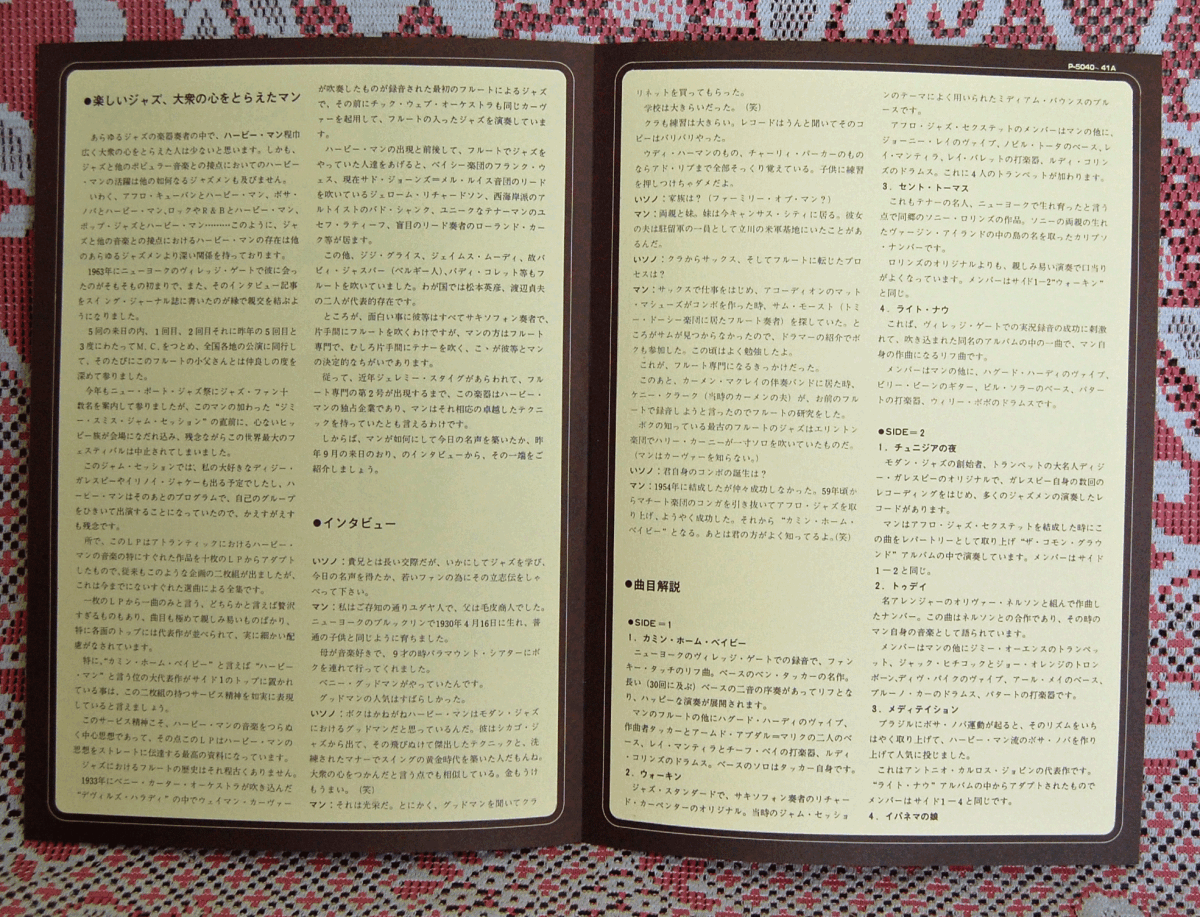 P-5040~41A
●楽しいジャズ、大衆の心をとらえたマン
あらゆるジャズの楽器奏者の中で、ハービー・マン程巾
広く大衆の心をとらえた人は少ないと思います。しかも、
ジャズと他のポピュラー音楽との接点においてのハービー
・マンの活躍は他の如何なるジャズメンも及びません。
いわく、アフロ・キューバンとハービー・マン、ボサ・
ノバとハービー・マン、ロックやR&Bとハービー・マン、
ポップ・ジャズとハービー・マン………このように、ジャ
ズと他の音楽との接点におけるハービー・マンの存在は他
のあらゆるジャズメンより深い関係を持っております。
1963年にニューヨークのヴィレッジ・ゲートで彼に会っ
たのがそもそもの初まりで、また、そのインタビュー記事
をスイング・ジャーナル誌に書いたのが縁で親交を結ぶよ
うになりました。
5回の来日の内、1回目、2回目それに昨年の5回目と
3度にわたってM.C.をつとめ、全国各地の公演に同行し
て、そのたびにこのフルートの小父さんとは仲良しの度を
深めて参りました。
今年もニュー・ポート・ジャズ祭にジャズ・ファン十
数名を案内して参りましたが、このマンの加わった“ジミ
ー・スミス・ジャム・セッション”の直前に、心ないヒッ
ピー族が会場になだれ込み、残念ながらこの世界最大のフ
ェスティバルは中止されてしまいました。
このジャム・セッションでは、私の大好きなディジー・
ガレスピーやイリノイ・ジャケーも出る予定でしたし、ハ
ービー・マンはそのあとのプログラムで、自己のグループ
をひきいて出演することになっていたので、かえすがえす
も残念です。
所で、このLPはアトランティックにおけるハービー・
マンの音楽の特にすぐれた作品を十枚のLPからアダプト
したもので、従来もこのような企画の二枚組が出ましたが、
これは今までにないすぐれた選曲による全集です。
一枚のLPから一曲のみと言う、どちらかと言えば贅沢
すぎるものもあり、曲目も極めて親しみ易いものばかり、
特に各面のトップには代表作が並べられて、実に細かい配
慮がなされています。
特に、“カミン・ホーム・ベイビー”と言えば“ハービー
・マン”と言う位の大代表作がサイド1のトップに置かれ
ている事は、この二枚組の持つサービス精神を如実に表現
していると言えましょう。
このサービス精神こそ、ハービー・マンの音楽をつらぬ
く中心思想であって、その点このLPはハービー・マンの
思想をストレートに伝達する最高の資料になっています。
ジャズにおけるフルートの歴史はそれ程古くありません。
1933年にベニー・カーター・オーケストラが吹き込んだ
“デヴィルズ・ハラディ”の中でウェイマン・カーヴァー
が吹奏したものが録音された最初のフルートによるジャズ
で、その前にチック・ウェブ・オーケストラも同じカーヴ
ァーを起用して、フルートの入ったジャズを演奏していま
す。
ハービー・マンの出現と前後して、フルートでジャズを
やっていた人達をあげると、ベイシー楽団のフランク・ウ
ェス、現在サド・ジョーンズ=メル・ルイス音団のリード
を吹いているジェローム・リチャードソン、西海岸派のア
ルトイストのバド・シャンク、ユニークなテナーマンのユ
セフ・ラティーフ、盲目のリード奏者のローランド・カー
ク等が居ます。
この他、ジジ・グライス、ジェイムス・ムーディ、故バ
ビィ・ジャスパー(ベルギー人)、バディ・コレット等もフ
ルートを吹いていました。わが国では松本英彦、渡辺貞夫
の二人が代表的存在です。
ところが、面白い事に彼等はすべてサキソフォン奏者で、
片手間にフルートを吹くわけですが、マンの方はフルート
専門で、むしろ片手間にテナーを吹く、こゝが彼等とマン
の決定的なちがいであります。
従って、近年ジェレミー・スタイグがあらわれて、フル
ート専門の第2号が出現するまで、この楽器はハービー・
マンの独占企業であり、マンはそれ相応の卓越したテクニ
ックを持っていたとも言えるわけです。
しからば、マンが如何にして今日の名声を築いたか、昨
年9月の来日のおり、のインタビューから、その一端をご
紹介しましょう。
●インタビュー
いソノ:貴兄とは長い交際だが、いかにしてジャズを学び、
今日の名声を得たか、若いファンの為にその立志伝をしゃ
べって下さい。
マン:私はご存知の通りユダヤ人で、父は毛皮商人でした。
ニューヨークのブルックリンで1930年4月16日に生れ、普
通の子供と同じように育ちました。
母が音楽好きで、9才の時パラマウント・シアターにボ
クを連れて行ってくれました。
ベニー・グッドマンがやっていたんです。
グッドマンの人気はすばらしかった。
いソノ:ボクはかねがねハービー・マンはモダン・ジャズ
におけるグッドマンだと思っているんだ。彼はシカゴ・ジ
ャズから出て、その飛びぬけて傑出したテクニックと、洗
練されたマナーでスイングの黄金時代を築いた人だもんね。
大衆の心をつかんだと言う点でも相似している。金もうけ
もうまい。(笑)
マン:それは光栄だ。とにかく、グッドマンを聞いてクラ
リネットを買ってもらった。
学校は大きらいだった。(笑)
クラも練習は大きらい。レコードはうんと聞いてそのコ
ピーはバリバリやった。
ウディ・ハーマンのもの、チャーリィ・パーカーのもの
ならアド・リブまで全部そっくり覚えている。子供に練習
を押しつけちゃダメだよ。
いソノ:家族は?(ファーミリー・オブ・マン?)
マン:両親と妹。妹は今キャンサス・シティに居る。彼女
の夫は駐留軍の一員として立川の米軍基地にいたことがあ
るんだ。
いソノ:クラからサックス、そしてフルートに転じたプロ
セスは?
マン:サックスで仕事をはじめ、アコーディオンのマット
・マシューズがコンボを作った時、サム・モースト(トミ
ー・ドーシー楽団に居たフルート奏者)を探していた。と
ころがサムが見つからなかったので、ドラマーの紹介でボ
クも参加した。この頃はよく勉強したよ。
これが、フルート専門になるきっかけだった。
このあと、カーメン・マクレイの伴奏バンドに居た時、
ケニー・クラーク(当時のカーメンの夫)が、お前のフル
ートで録音しようと言ったのでフルートの研究をした。
ボクの知っている最古のフルートのジャズはエリントン
楽団でハリー・カーニーが一寸ソロを吹いていたものだ。
(マンはカーヴァーを知らない。)
いソノ:君自身のコンボの誕生は?
マン:1954年に結成したが仲々成功しなかった。59年頃か
らマチート楽団のコンガを引き抜いてアフロ・ジャズを取
り上げ、ようやく成功した。それから“カミン・ホーム・
ベイビー”となる。あとは君の方がよく知ってるよ。(笑)
●曲目解説
●SIDE=1
1.カミン・ホーム・ベイビー
ニューヨークのヴィレッジ・ゲートでの録音で、ファン
キー・タッチのリフ曲。ベースのベン・タッカーの名作。
長い(30回に及ぶ)ベースの二音の序奏があってリフとな
り、ハッピーな演奏が展開されます。
マンのフルートの他にハグード・ハーディのヴァイブ、
作曲者タッカーとアームド・アブダル=マリクの二人のベ
ース、レイ・マンティラとチーフ・ベイの打楽器、ルディ
・コリンズのドラムス。ベースのソロはタッカー自身です。
2.ウォーキン
ジャズ・スタンダードで、サキソフォン奏者のリチャー
ド・カーペンターのオリジナル。当時のジャム・セッショ
ンのテーマによく用いられたミディアム・バウンスのブル
ースです。
アフロ・ジャズ・セクステットのメンバーはマンの他に、
ジョーニー・レイのヴァイブ、ノビル・トータのベース、レ
イ・マンティラ、レイ・バレットの打楽器、ルディ・コリン
ズのドラムス。これに4人のトランペットが加わります。
3.セント・トーマス
これもテナーの名人、ニューヨークで生れ育ったと言う
点で同郷のソニー・ロリンズの作品。ソニーの両親の生れ
たヴァージン・アイランドの中の島の名を取ったカリプソ
・ナンバーです。
ロリンズのオリジナルよりも、親しみ易い演奏で口当り
がよくなっています。メンバーはサイド1−2“ウォーキン”
と同じ。
4.ライト・ナウ
これは、ヴィレッジ・ゲートでの実況録音の成功に刺激
れて、吹き込まれた同名のアルバムの中の一曲で、マン自
身の作曲になるリフ曲です。
メンバーはマンの他に、ハグード・ハーディのヴァイブ、
ビリー・ビーンのギター、ビル・ソラーのベース、パター
トの打楽器、ウィリー・ボボのドラムスです。
●SIDE=2
1.チュニジアの夜
モダン・ジャズの創始者、トランペットの大名人ディジ
ー・ガレスピーのオリジナルで、ガレスピー自身の数回の
レコーディングをはじめ、多くのジャズメンの演奏したレ
コードがあります。
マンはアフロ・ジャズ・セクステットを結成した時にこ
の曲をレパートリーとして取り上げ“ザ・コモン・グラウ
ンド”アルバムの中で演奏しています。メンバーはサイド
1−2と同じ。
2.トゥデイ
名アレンジャーのオリヴァー・ネルソンと組んで作曲し
たナンバー。この曲はネルソンとの合作であり、その時の
マン自身の音楽として語られています。
メンバーはマンの他にジミー・オーエンスのトランペッ
ト、ジャック・ヒチコックとジョー・オレンジのトロン
ボーン、ディヴ・パイクのヴァイブ、アール・メイのベース、
ブルーノ・カーのドラムス、パタートの打楽器です。
3.メディテイション
ブラジルにボサ・ノバ運動が起ると、そのリズムをいち
はやく取り上げて、ハービー・マン流のボサ・ノバを作り
上げて人気に投じました。
これはアントニオ・カルロス・ジョビンの代表作です。
“ライト・ナウ”アルバムの中からアダプトされたもので
メンバーはサイド1−4と同じです。
4.イパネマの娘